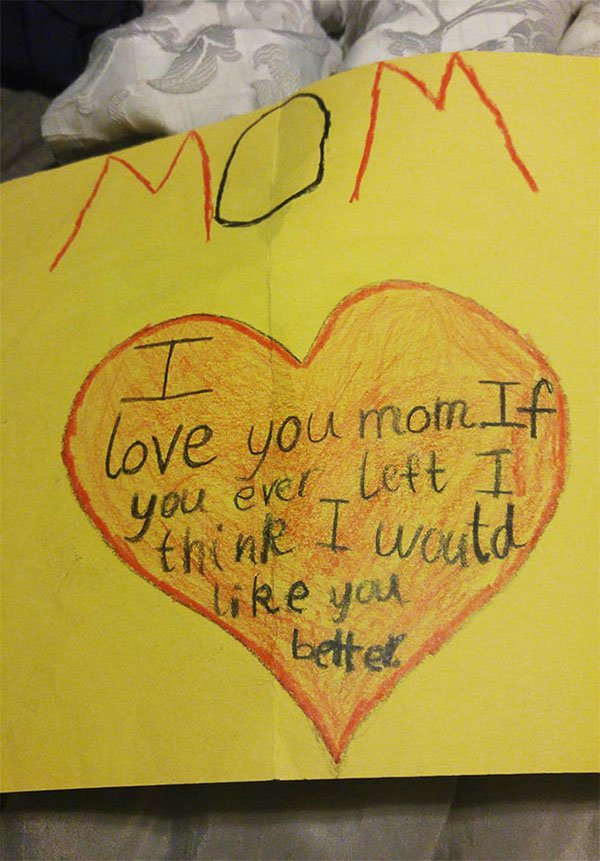 MOM
I
love you mom. If
you ever left I
think I would
like you
better.